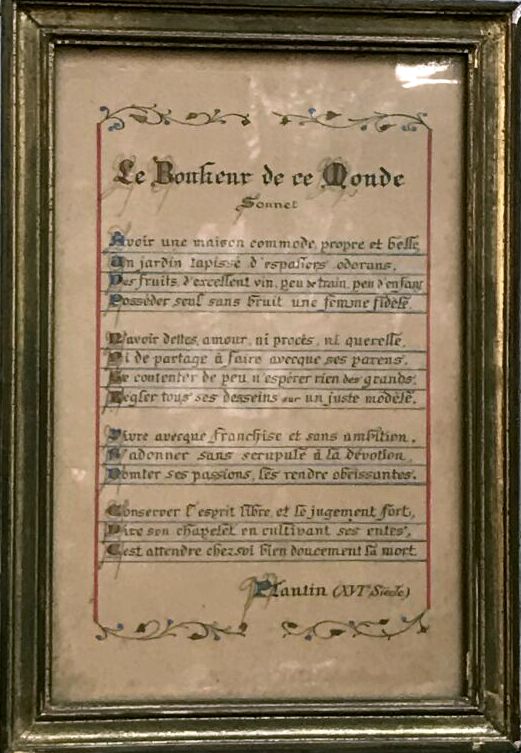 Le Bonheur de ce Monde
Sonnet
Avoir une maison commode, propre et belle,
Un jardin tapissé d'espaliers odorans,
Des fruits, d'excellent vin, peu de train, peu d'enfans
Posséder seul sans bruit une femme fidèle.
N'avoir dettes, amour, ni procès, ni querelle,
Ni de partage à faire avecque ses parens,
Se contenter de peu n'espérer rien des grands,
Régler tous ses desseins sur un juste modèle.
Vivre avecque franchise et sans ambition,
S'adonner sans scrupule à la dévotion,
Domter ses passions, les rendre obéissantes.
Conserver l'esprit libre, et le jugement fort,
Dire son chapelet en cultivant ses entes,
C'est attendre chez soi bien doucement la mort
Plantin (XVIe Siècle)